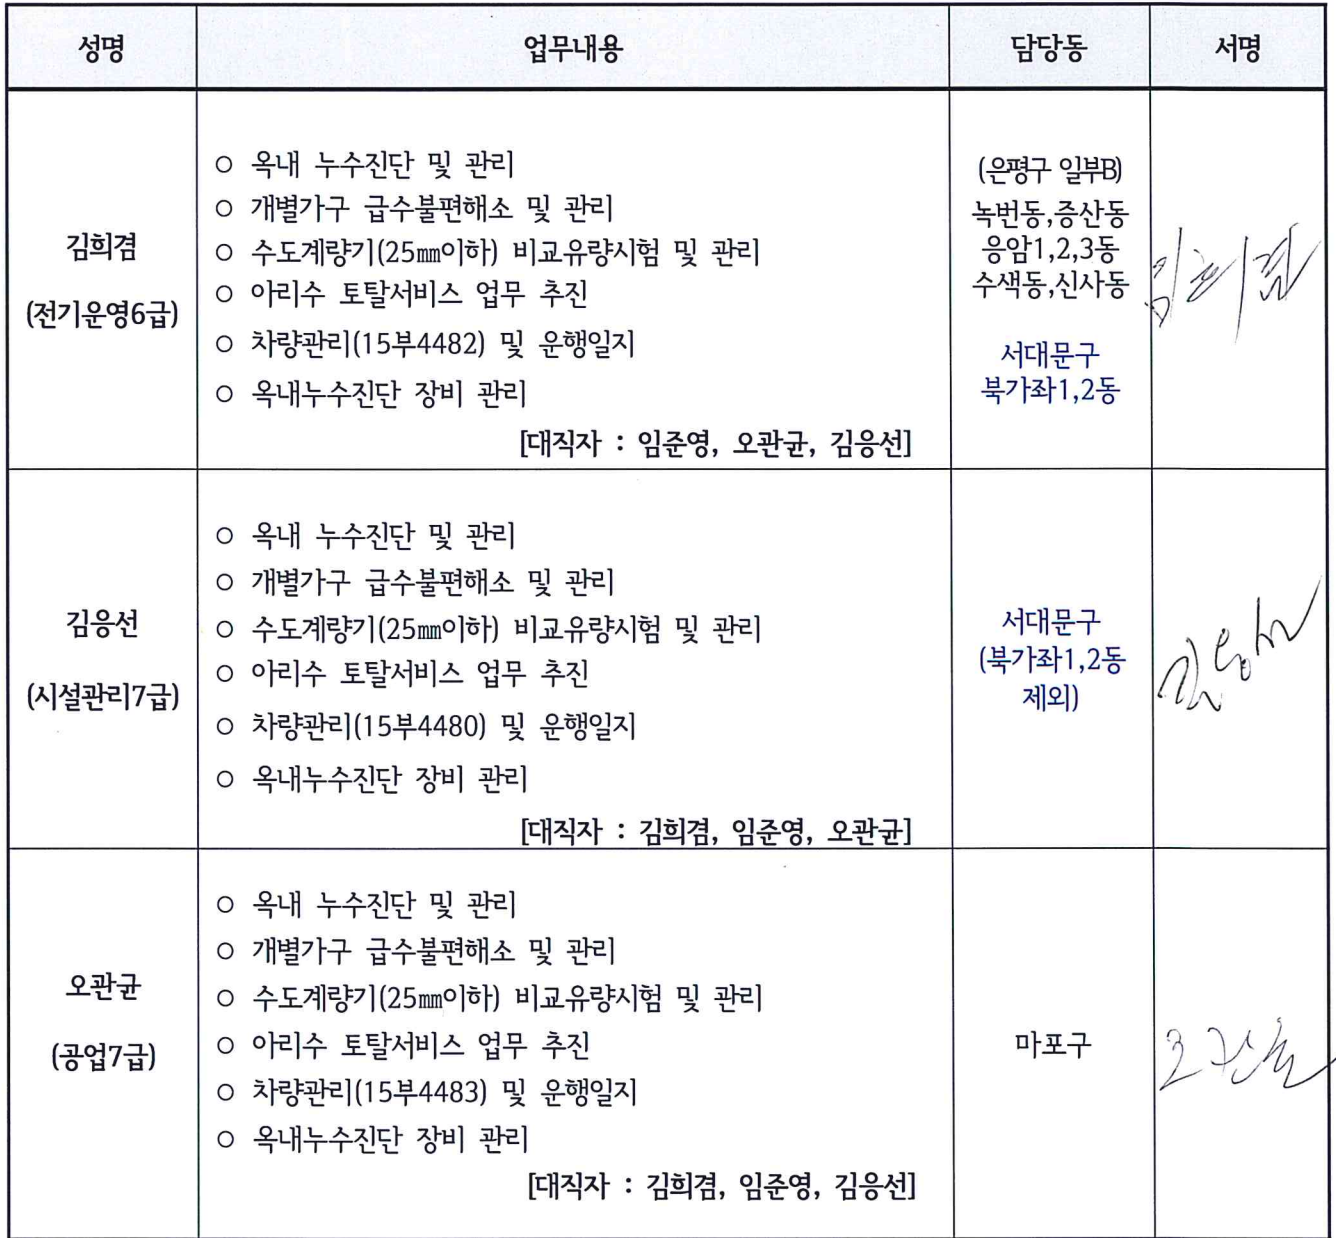 성명 업무내용 담당동 서명
김희겸
(전기운영6급)
○ 옥내 누수진단 및 관리
○ 개별가구 급수불편해소 및 관리
○ 수도계량기(25㎜이하) 비교유량시험 및 관리
○ 아리수 토탈서비스 업무 추진
○ 차량관리(15부4482) 및 운행일지
○ 옥내누수진단 장비 관리
[대직자 : 임준영, 오관균, 김응선]
(은평구 일부B)
녹번동,증산동
응암1,2,3동
수색동,신사동
서대문구
북가좌1,2동
김희겸
김응선
(시설관리7급)
○ 옥내 누수진단 및 관리
○ 개별가구 급수불편해소 및 관리
○ 수도계량기(25㎜이하) 비교유량시험 및 관리
○ 아리수 토탈서비스 업무 추진
○ 차량관리(15부4480) 및 운행일지
○ 옥내누수진단 장비 관리
[대직자 : 김희겸, 임준영, 오관균]
서대문구
(북가좌1,2동
제외)
김응선
오관균
(공업7급)
○ 옥내 누수진단 및 관리
○ 개별가구 급수불편해소 및 관리
○ 수도계량기(25㎜이하) 비교유량시험 및 관리
○ 아리수 토탈서비스 업무 추진
○ 차량관리(15부4483) 및 운행일지
○ 옥내누수진단 장비 관리
[대직자 : 김희겸, 임준영, 김응선]
마포구
오관균